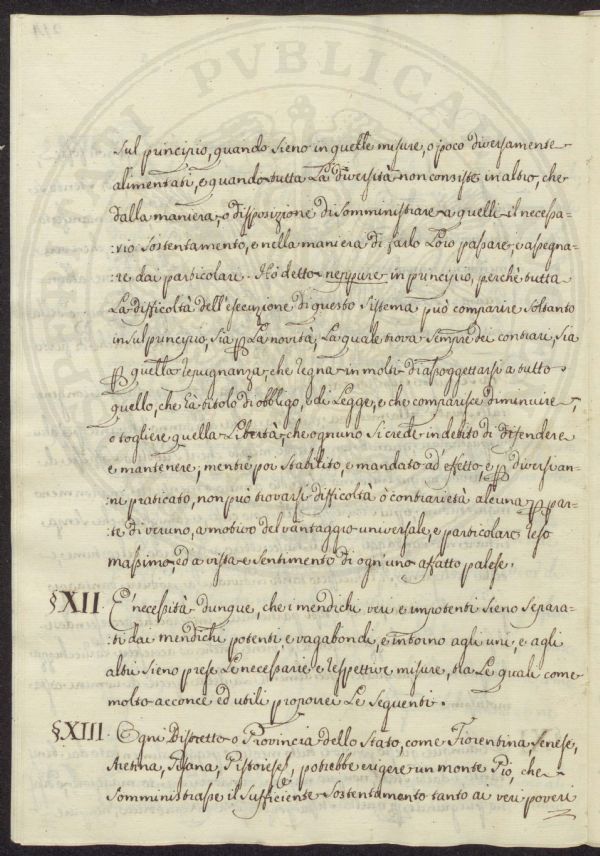 sul principio, quando sieno in quelle misure, o poco diversamente
alimentati, e quando tutta la diversità non consiste in altro, che
dalla maniera, o disposizione di somministrare a quelli il necessa-
:rio sostentamento, e nella maniera di farlo loro passare, e assegna-
:re dai particolari. Hò detto neppure in principio, perchè tutta
la difficoltà dell'esecuzione di questo sistema può comparire soltanto
in sul principio, sia p la novità, la quale trova sempre dei contrari, sia
p quella repugnanza, che regna in molti di assoggettarsi a tutto
quello, che hà titolo di obbligo, e di Legge, e che comparisce diminuire,
o togliere quella libertà, che ognuno si crede in debito di difendere
e mantenere; mentre poi stabilito, e mandato ad effetto e p diversi an-
:ni praticato, non può trovarsi difficoltà ò contrarietà alcuna p par-
:te di veruno, a motivo del vantaggio universale, e particolare reso
massimo, ed a vista e sentimento di ogn'uno affatto palese.
§XII. E' necessità dunque, che i mendichi veri e impotenti sieno separa-
:ti dai mendichi potenti, e vagabondi, e intorno agli uni, e agli
altri sieno prese le necessarie e respettive misure, tra le quali come
molto acconce ed utili proporrei le seguenti.
§XIII. Ogni Distretto o Provincia dello Stato, come Fiorentina, Senese,
Aretina, Pisana, Pistoiese &, potrebbe erigere un monte Pio, che
somministrasse il sufficiente sostentamento tanto ai veri poveri
PVBLICA